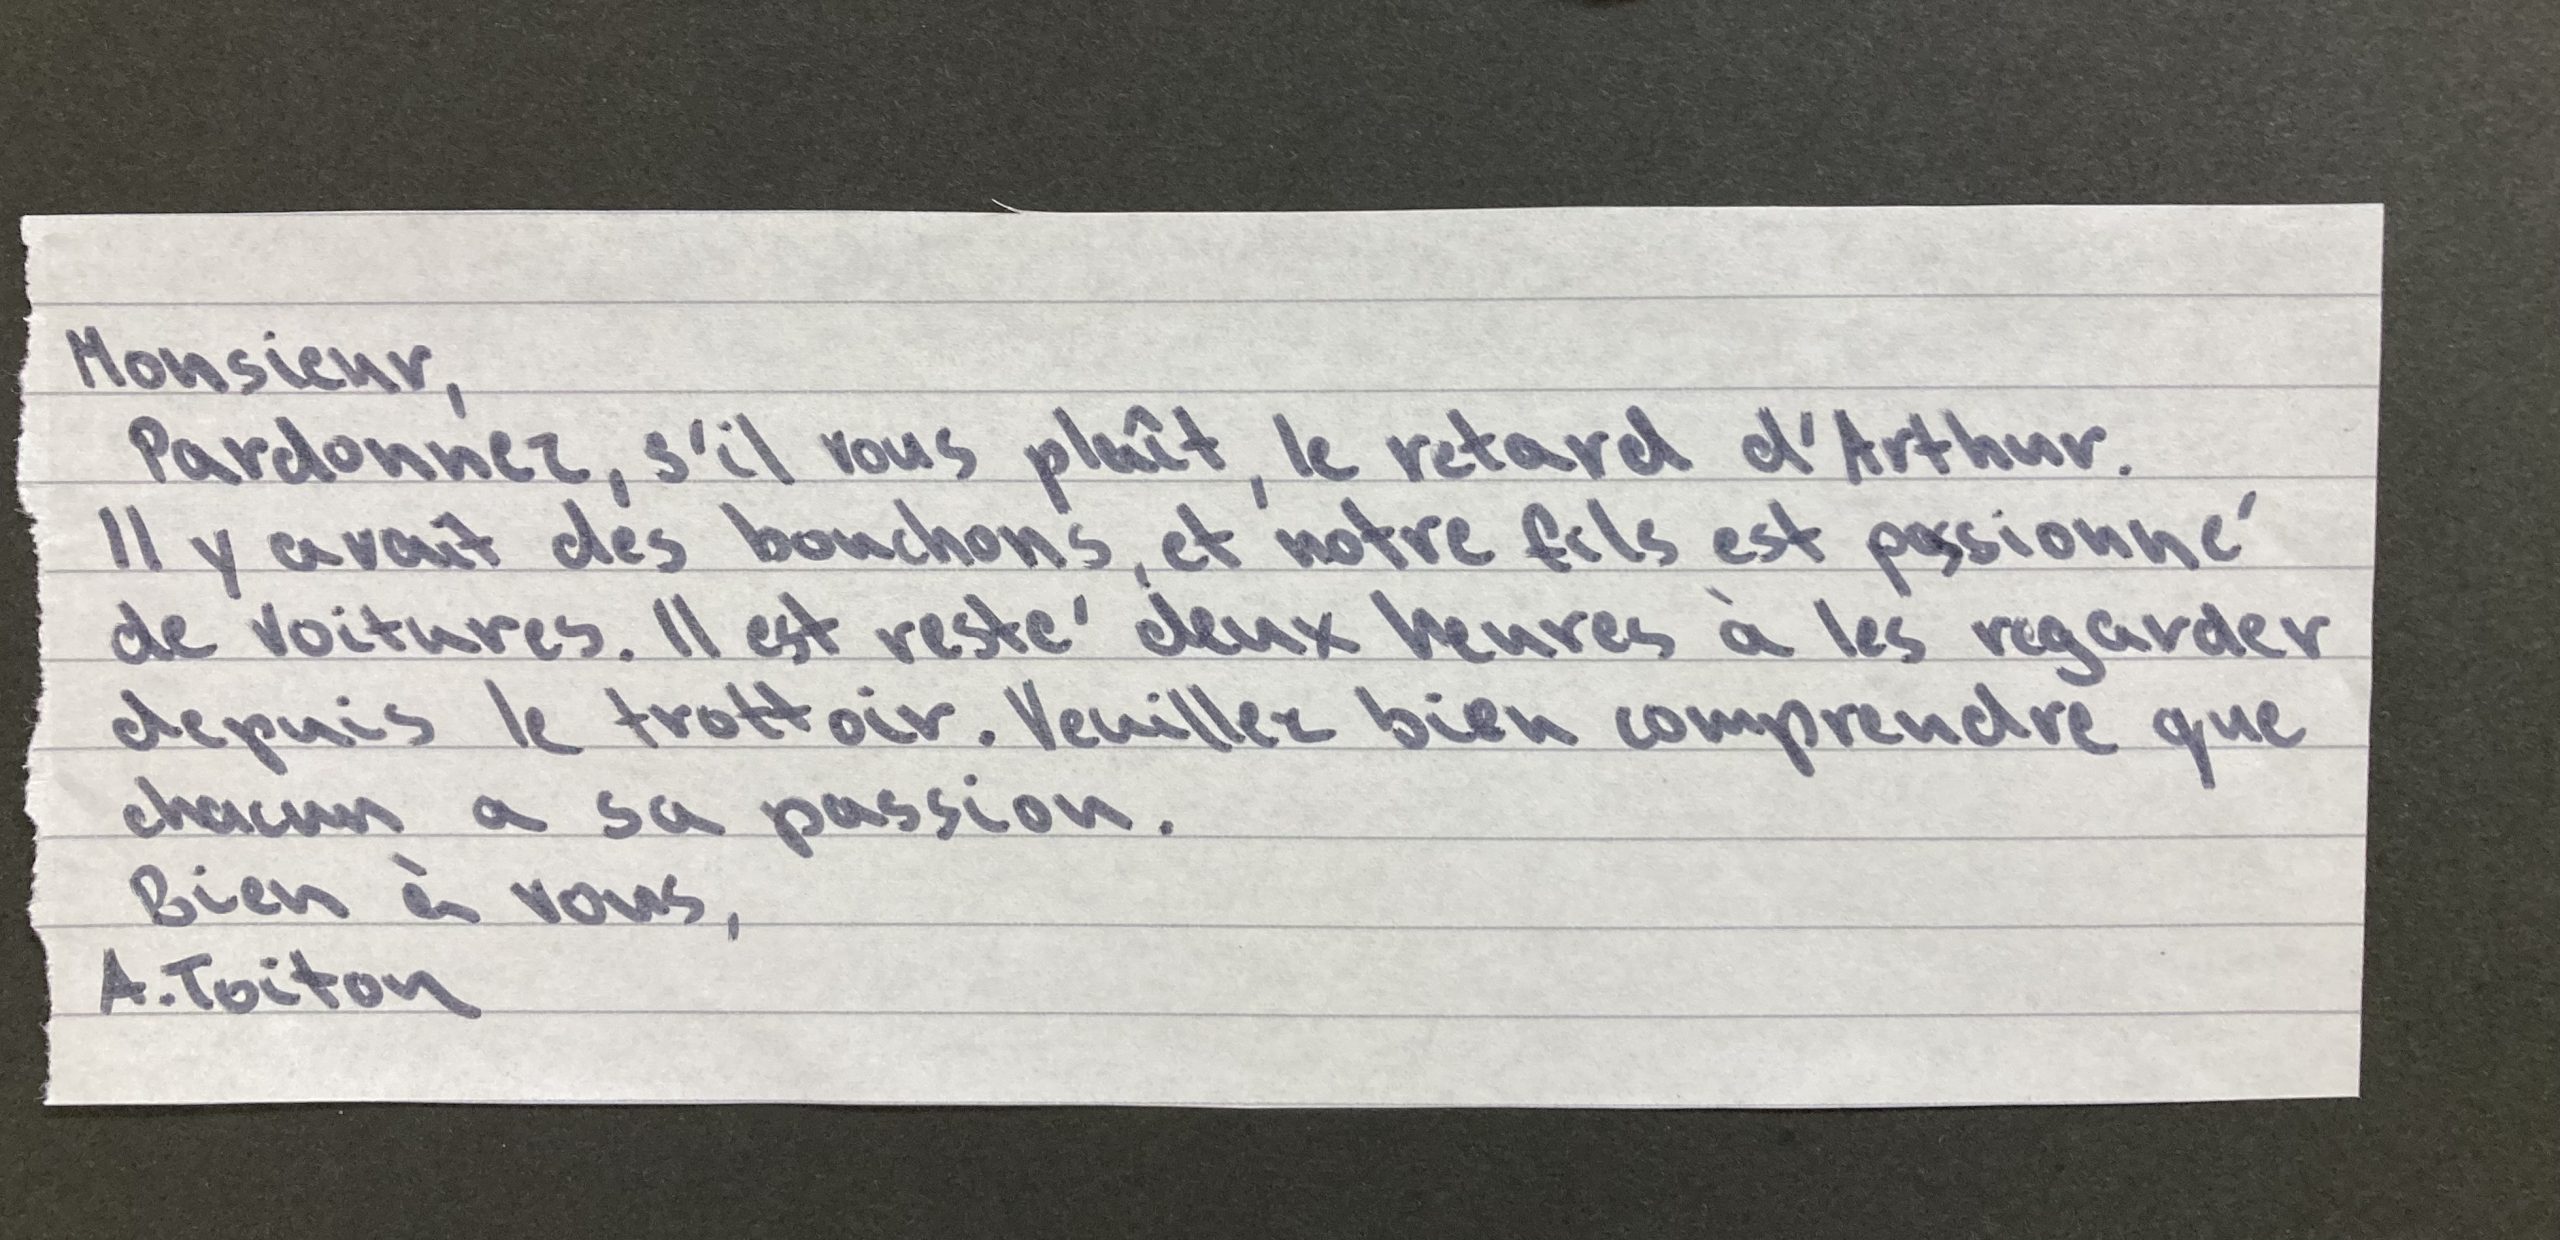 Monsieur,
Pardonnez, s'il vous plaît, le retard d'Arthur.
Il y avait des bouchons, et notre fils est passionné
de voitures. Il est resté deux heures à les regarder
depuis le trottoir. Veuillez bien comprendre que
chacun a sa passion.
Bien à vous,
A. Toiton